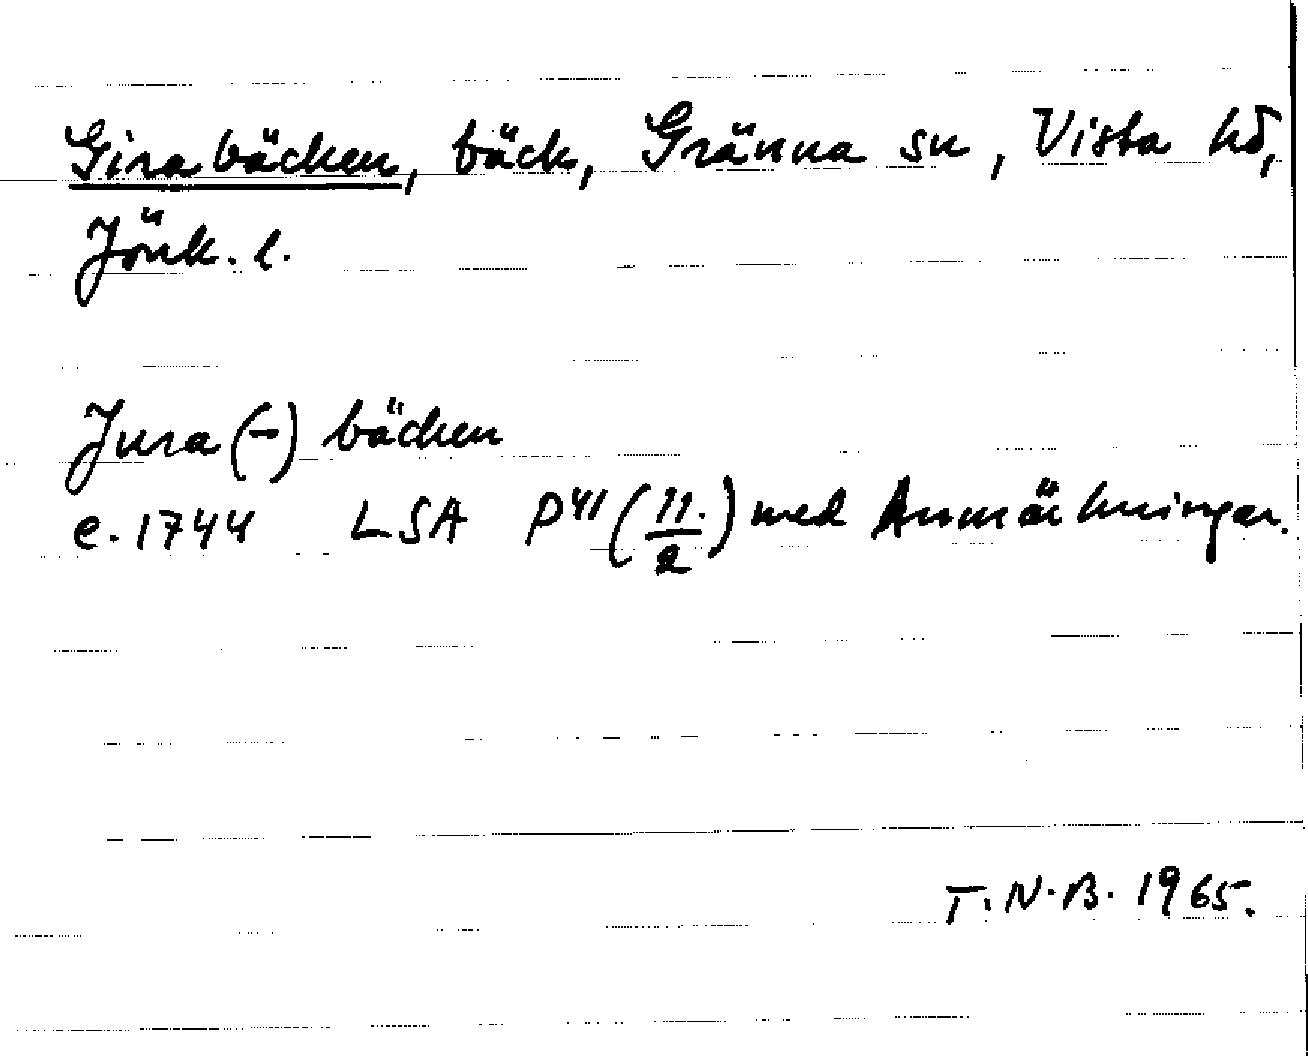 Girabäcken, bäck, Gränna sn, Vista hd,
Jönk. l.
Jura(-) bäcken
e. 1744 LSA P41 (11./2) med Anmärkningar.
T.N.B. 1965.